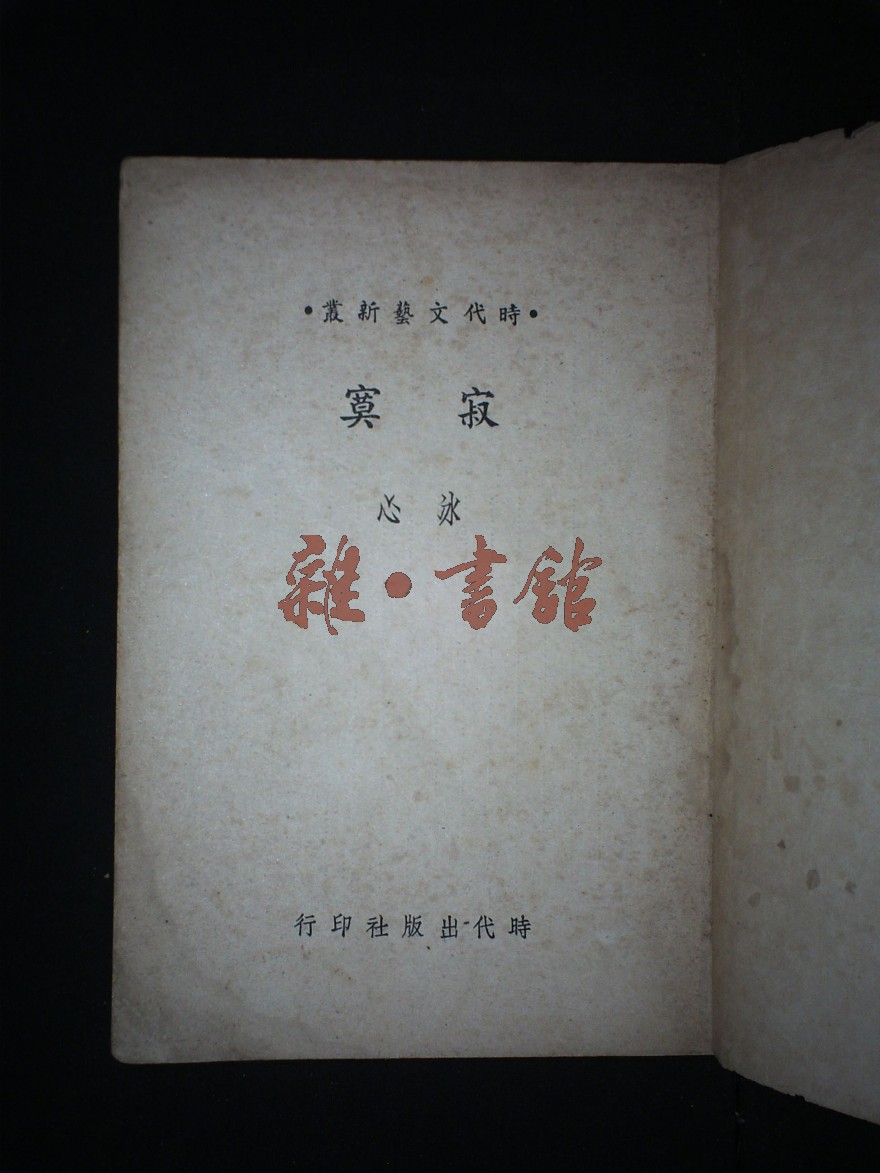 •時代文藝新叢•
寂寞
冰心
雜•書館
時代出版社印行